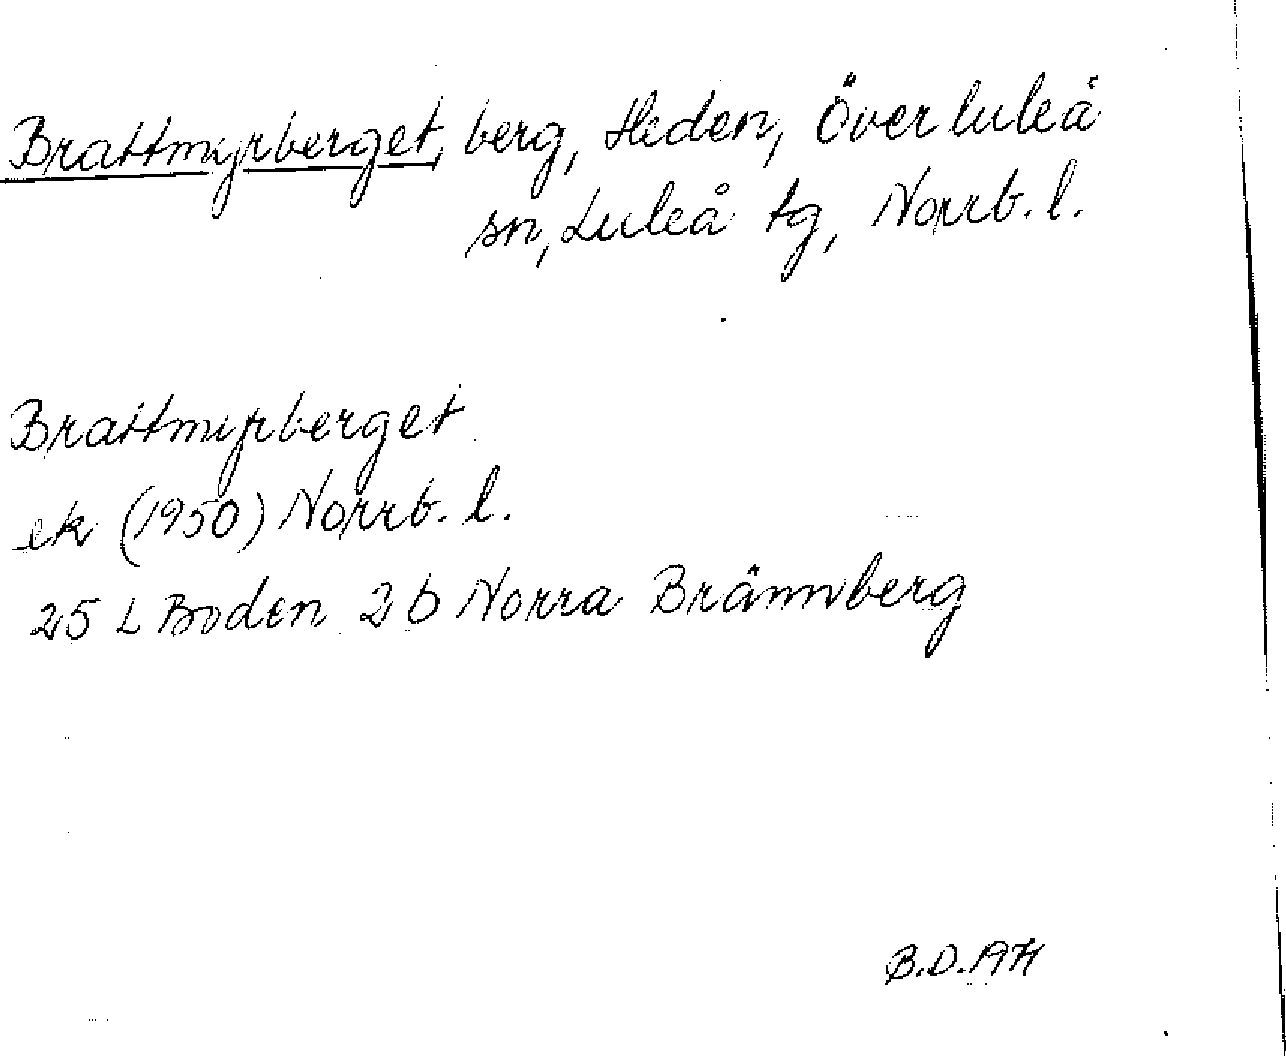 Brattmyrberget, berg, Heden, Överluleå
sn, Luleå tg, Norrb. l.
Brattmyrberget
ek (1950) Norrb. l.
25 L Boden 2b Norra Brännberg
B.D. 1971